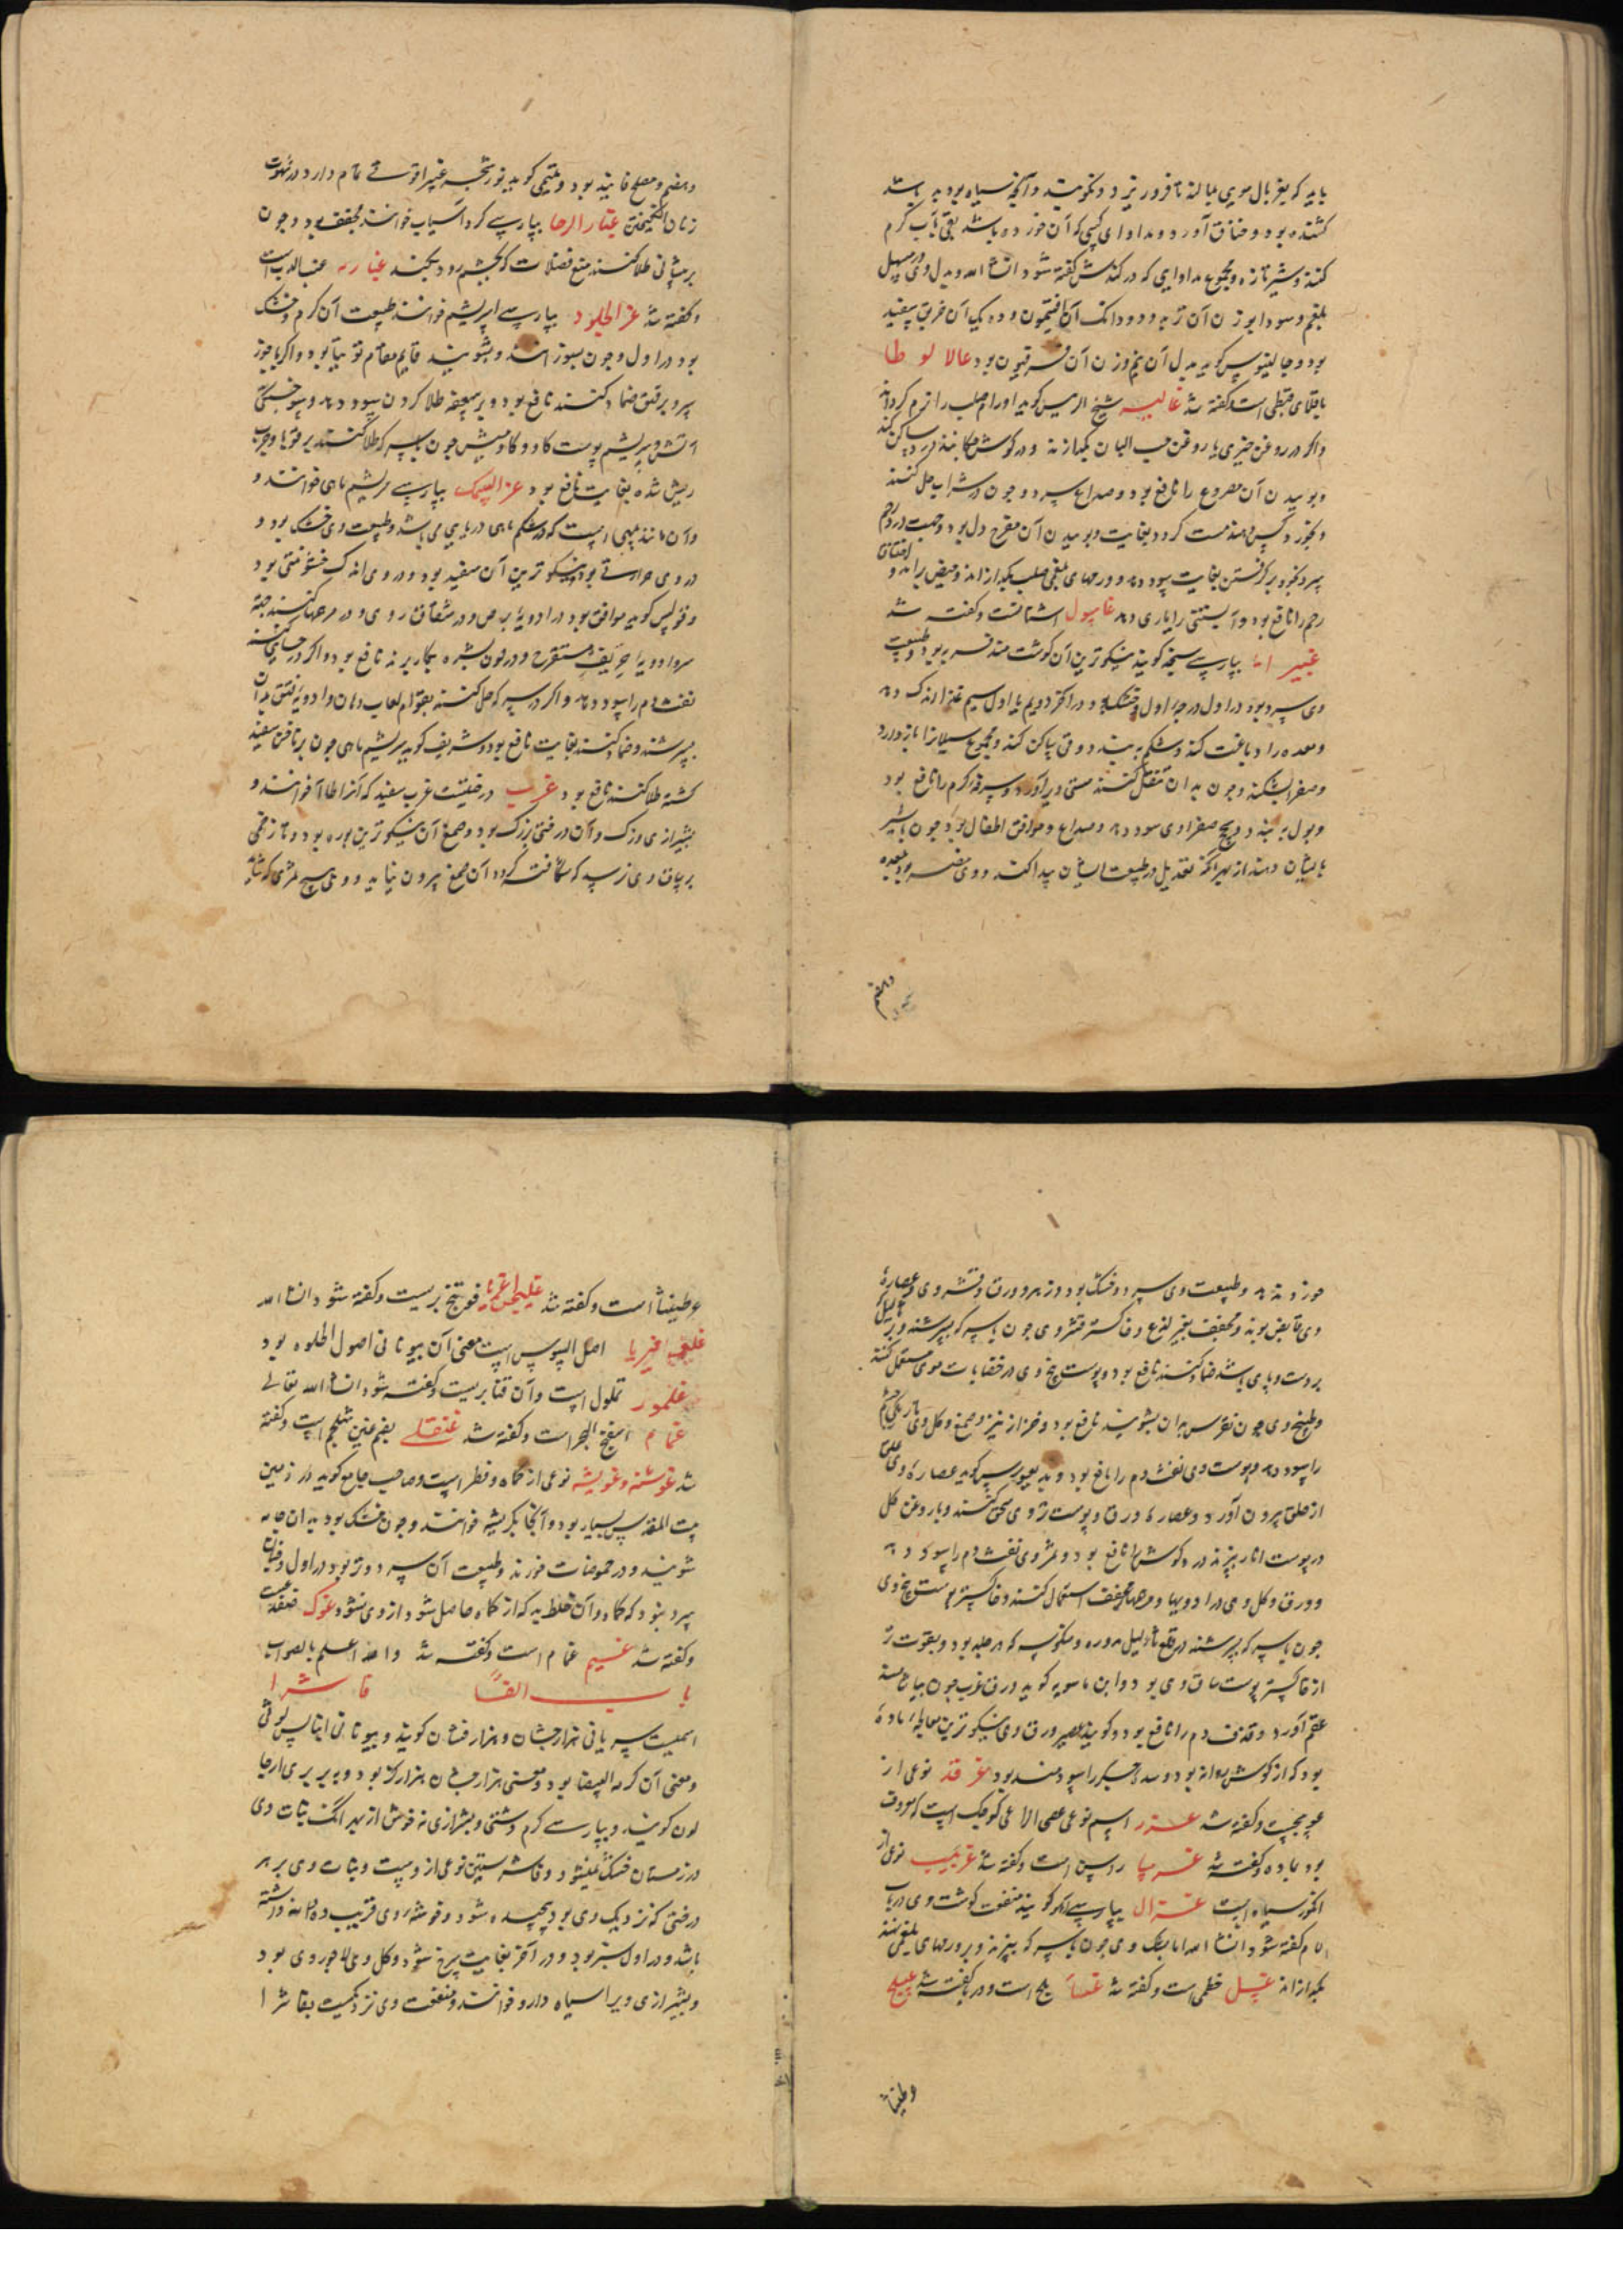 باید که بغربال مویی بمالند تا فرو ریزد و نکوبند و آنچه سیاه بود بد باشد
کشنده بود و خناق آورد و مداوای کسی که آن خورده باشد بقی بآب گرم
کنند و شیر تازه و مجموع مداوایی که در کندش گفته شود ان شاء الله و بدل وی در مسهل
بلغم و سودا بوزن آن تربد و دو دانک آن افتیمون و ده یک آن خربق سفید
بود و جالینوس گوید بدل آن نیم وزن آن فربیون بود غالالوطا
باقلای قبطی است گفته شد غالیه شیخ الرئیس گوید اورام صلب را نرم گرداند
و اگر در روغن خیری یا روغن حب البان بگدازند و در گوش چکانند درد ساکن کند
و بوییدن آن مصروع را نافع بود و صداع سرد و چون در شراب حل کنند
و بخورد کسی دهند مست گردد بغایت و بوییدن آن مفرح دل بود و جهت درد رحم
سرد بخود برگرفتن بغایت سود دهد و ورمهای بلغمی صلب بگدازاند و حیض براند و اختناق
رحم را نافع بود و آبستنی را یاری دهد غاسول اشنانست و گفته شد
غبیرا بپارسی سنجد گویند نیکوترین آن گوشت مند فربه بود و طبیعت
وی سرد بود در اول درجه اول و خشک بود در آخر دویم یا اول سیم غذا اندک دهد
و معده را دباغت کند و شکم ببندد و قی ساکن کند و مجموع سیلانها باز دارد
و صفرا بشکند و چون بدان تنقل کنند مستی دیر آورد و سرفه گرم را نافع بود
و بول ببندد و سحج صفراوی سود دهد و صداع و موافق اطفال بود چون با شیر
بایشان دهند از بهر آنکه تعدیل در طبیعت ایشان پیدا کند و وی مضر بود بمعده
و هضم
و هضم و مصلح فانید بود و تمیمی گوید نور شجره غبیرا قوتی تمام دارد در شهوت
زنان انگیختن غبار الرحا بپارسی گرد آسیاب خوانند مجفف بود و چون
بر پیشانی طلا کنند منع فضلات که بچشم رود بکند غبارید عنب الدب است
و گفته شد غرا الجلود بپارسی سریشم خوانند طبیعت آن گرم و خشک
بود در اول و چون بسوزانند و بشویند قایم مقام توتیا بود و اگر با جوز
سرو بر فتق ضماد کنند نافع بود و بر سعفه طلا کردن سود دهد و سوختگی
آتش و سریشم پوست گاو و گاومیش چون بسرکه طلا کنند بر قوبا و جرب
ریش شده بغایت نافع بود غرا السمک بپارسی سریشم ماهی خوانند و
و آن مانند پیهی است که در شکم ماهی دریایی می باشد و طبیعت وی خشک بود و
در وی حرارتی بود نیکوترین آن سفید بود و در وی اندک خشونتی بود
و فولس گوید موافق بود در ادویه برص و در شقاق روی و در مرهمها کنند جهة
نفث دم را سود دهد و اگر در سرکه حل کنند بقوام لعاب دهان و ادویه فتق بدان
بسرشند و ضماد کنند بغایت نافع بود و شریف گوید سریشم ماهی چون بر ناخن سفید
گشته طلا کنند نافع بود غرب درختیست غرب سفید که آنرا طلا آ خوانند و
بشیرازی وزک و آن درختی بزرگ بود و صمغ آن نیکوترین بوره بود و تا زخمی
بر ساق وی نرسد که شکافته گردد آن صمغ بیرون نیاید و وی هیچ ثمری که شاید
خوردن ندهد و طبیعت وی سرد و خشک بود و زهر و ورق و قشر وی و عصاره
وی قابض بوند و مجفف بغیر لذع و خاکستر قشر وی چون با سرکه بسرشند و بر ثآلیل
بر دست و پای باشد ضماد کنند نافع بود و پوست بیخ وی در خضابات موی مستعمل کنند
و طبیخ وی چون نقرس بدان بشویند نافع بود و خزاز نیز و صمغ و گل وی تاریکی چشم
را سود دهد و پوست وی نفث دم را نافع بود و دیسقوریدس گوید عصاره وی علق
از حلق بیرون آورد و عصاره ورق و پوست تر وی سحق کنند و با روغن گل
در پوست انار بپزند درد گوش را نافع بود و ثمر وی نفث دم را سود دهد
و ورق و گل وی در ادویها و مرهمهای مجفف استعمال کنند و خاکستر پوست بیخ وی
چون با سرکه بسرشند در قلع ثآلیل مدوره و منکوسه که در جلد بود و بقوت تر
از خاکستر پوست ساق وی بود و ابن ماسویه گوید ورق غرب چون بیاشامند
عقم آورد و قذف دم را نافع بود و گویند عصیر ورق وی نیکوترین معالجه ماده
بود که از گوش روانه بود و سده جگر را سودمند بود غرقد نوعی از
عوسجست و گفته شد غرر اسم نوعی عصی الراعی کوچک است که معروف
بود بماده و گفته شد غرسا راسن است و گفته شد غربیب نوعی از
انگور سیاه است غزال بپارسی آهو گویند منفعت گوشت وی در باب
لام گفته شود ان شاء الله اما پشک وی چون با سرکه بپزند و بر ورمهای بلغمی نهند
بگدازاند غسل خطمی است و گفته شد غسا بلح است و در با گفته شد غسلج
وطنیثا
وطنیثا است و گفته شد غلیجن اغریا فودنج بریست و گفته شود ان شاء الله
غلیسیریا اصل السوس است معنی آن بیونانی اصول الحلوه بود
غلمور تملول است و آن قنابریست و گفته شود ان شاء الله تعالی
غمام اسفنج البحر است و گفته شد غنقلی بضم غین شلجم است و گفته
شد غوشنه و غویشه نوعی از کماه و فطر است و صاحب جامع گوید در زمین
بیت المقدس بسیار بود و آنجا بکریشه خوانند و چون خشک بود بدان جامه
شویند و در حموضات خورند و طبیعت آن سرد و تر بود در اول و چنان
سرد نبود که کماه و آن خلط بد که از کماه حاصل شود از وی نشود غوک ضفدعست
و گفته شد غیم غمام است و گفته شد والله اعلم بالصواب
باب الفا فاشرا
اسمیست سریانی هزارجشان و هزارفشان گویند و بیونانی انبالس لوقی
و معنی آن کرمه البیضا بود و معنی هزارجشان هزار گز بود و ببربری ارجا
لون گویند و بپارسی کرم دشتی و بشیرازی نخوش از بهر آنک نبات وی
در زمستان خشک نمیشود و فاشرستین نوعی از ویست و نبات وی بر هر
درختی که نزدیک وی بود پیچیده شود و خوشه وی قریب ده دانه داشته
باشد و در اول سبز بود و در آخر بغایت سرخ شود و گل وی لاجوردی بود
و بشیرازی ویرا سیاه دارو خوانند و منفعت وی نزدیکست بفاشرا